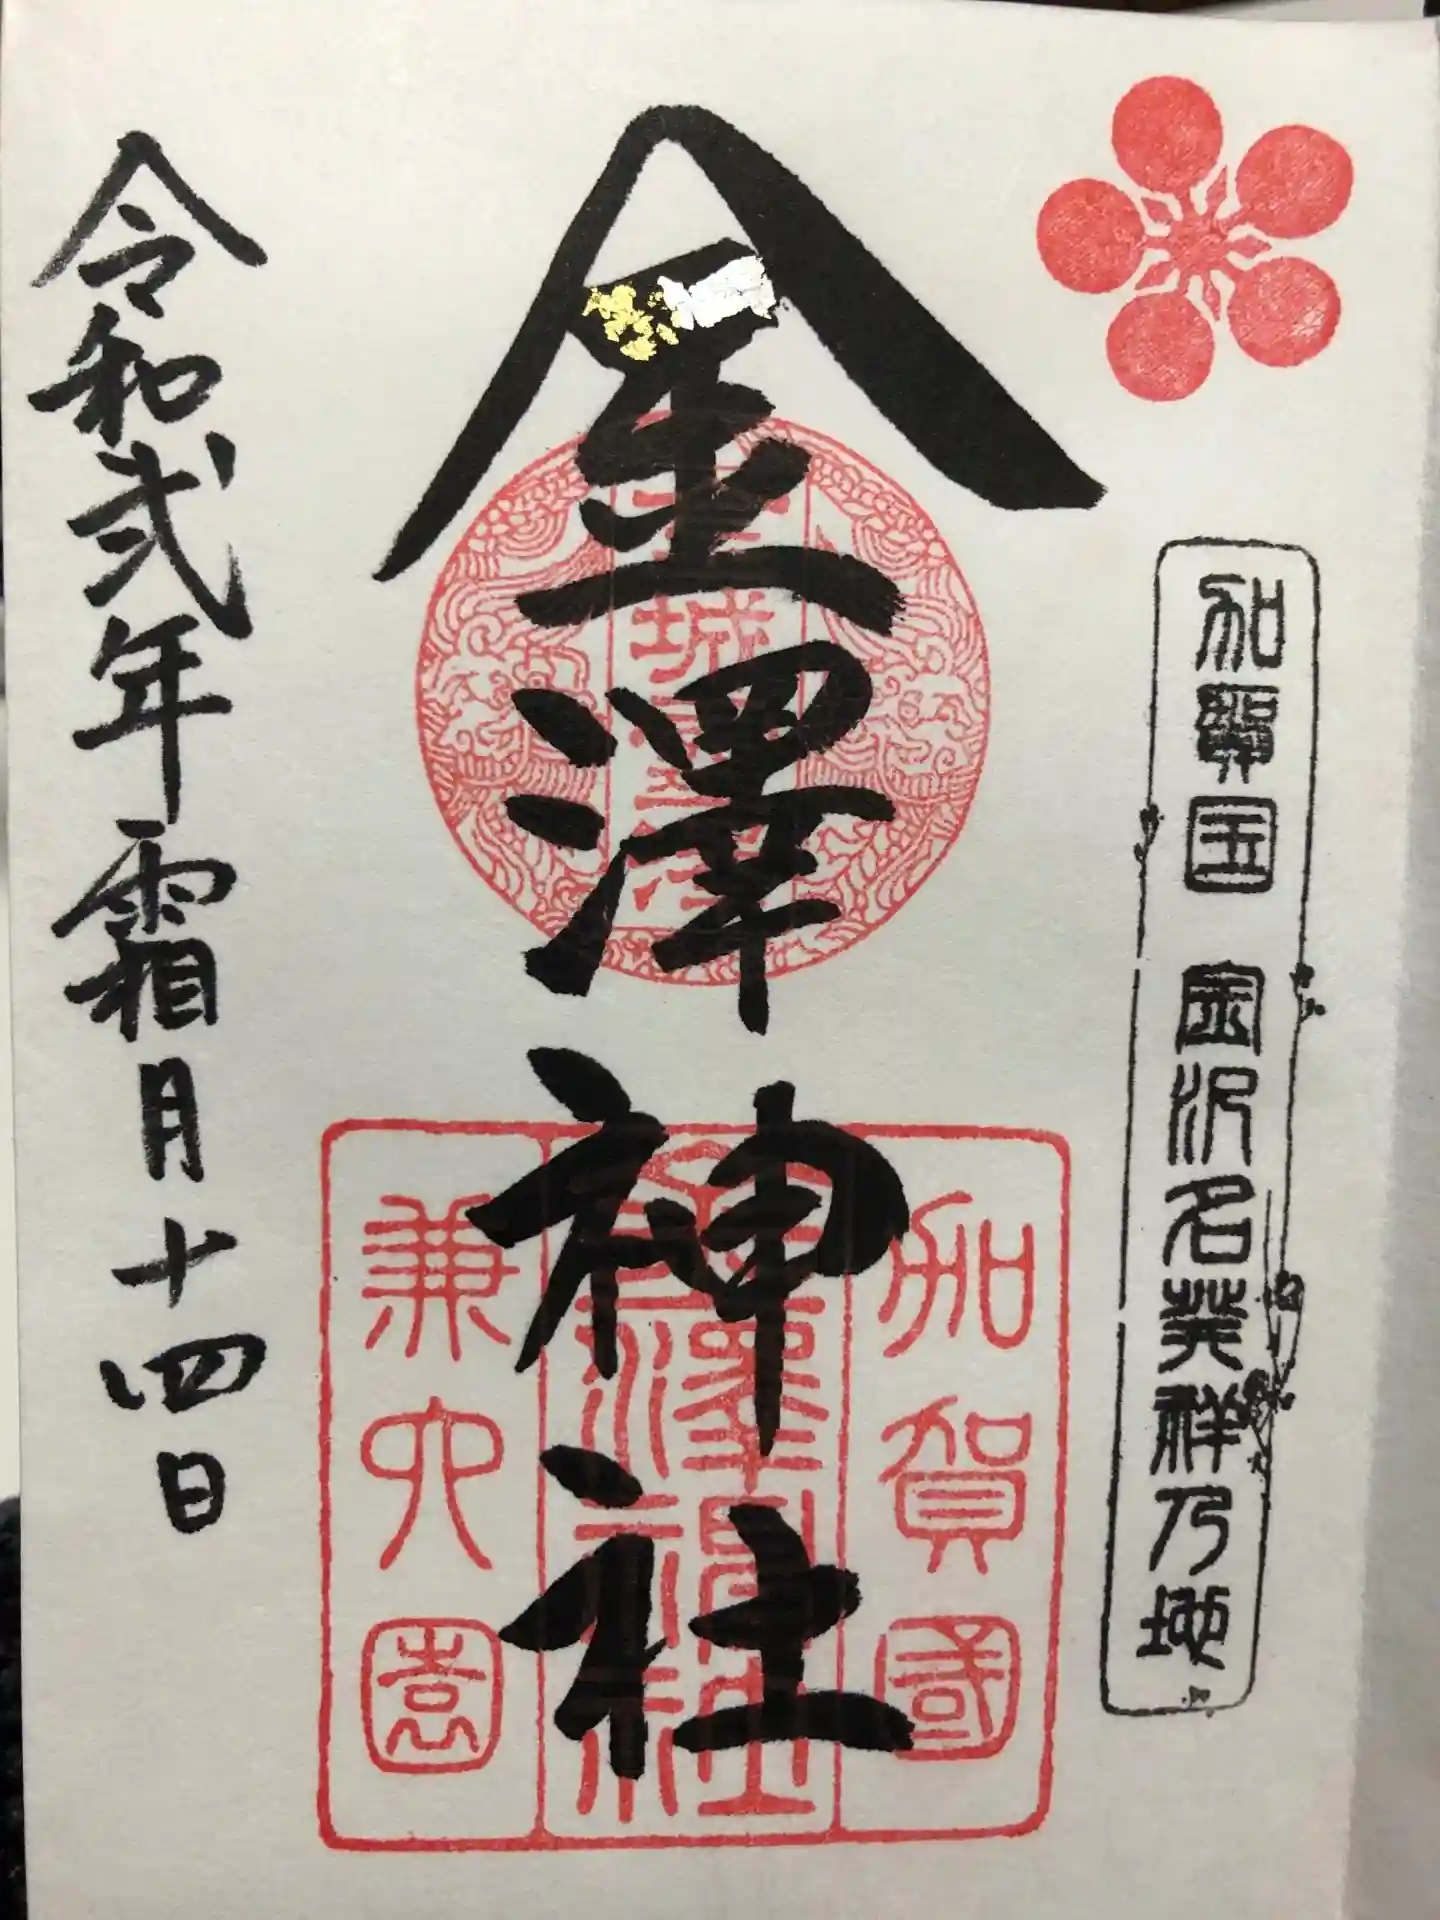 加賀国 金沢名発祥乃地
金澤神社
加賀國
金澤神社
兼六園
令和弐年霜月十四日